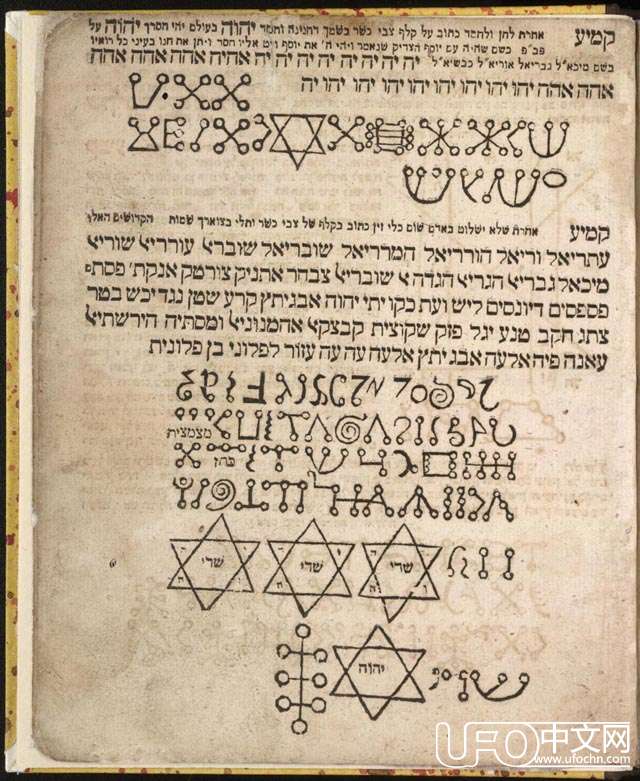 קמיע אחרת לחן ולחסד כתוב על קלף צבי כשר בשמך דחנינה וחסד יהוה בעולם יהי חסדך יהוה על
פב״פ כשם שהיה עם יוסף הצדיק שנאמר ויהי ה׳ את יוסף ויט אליו חסד ויתן את חנו בעיני כל רואיו
בשם מיכא״ל גבריאל אוריא״ל כבשיא״ל יה יה יה יה יה יה יה יה יה אהיה אהה אהה אהה
אהה אהה יהו יהו יהו יהו יהו יהו יהו יהו יה
קמיע אחרת שלא ישלוט באדם שום כלי זין כתוב בקלף של צבי כשר ותלי בצוארך שמות הקדושים האלו
עתריאל וריאל הורריאל המדריאל שובריאל שוברא עורריא שוריא
מיכאל גבריא הגריא הגדה א שובריא צבחר אתניק צורטק אנקת׳ פסתם
פספסים דיונסים ליש ועת כקו יתי יהוה אבגיתץ קרע שטן נגדיכש בטר
צתג חקב טנע יגל פזק שקוצית קבצקא אהמנוניא ומסתיה הירשתיא
עאנה פיה אלעה אבג יתץ אלעה עה עה עזור לפלוני בן פלונית
מצמצית
כהן
שדי שדי שדי
יהוה
UFO中文网
www.ufochn.com